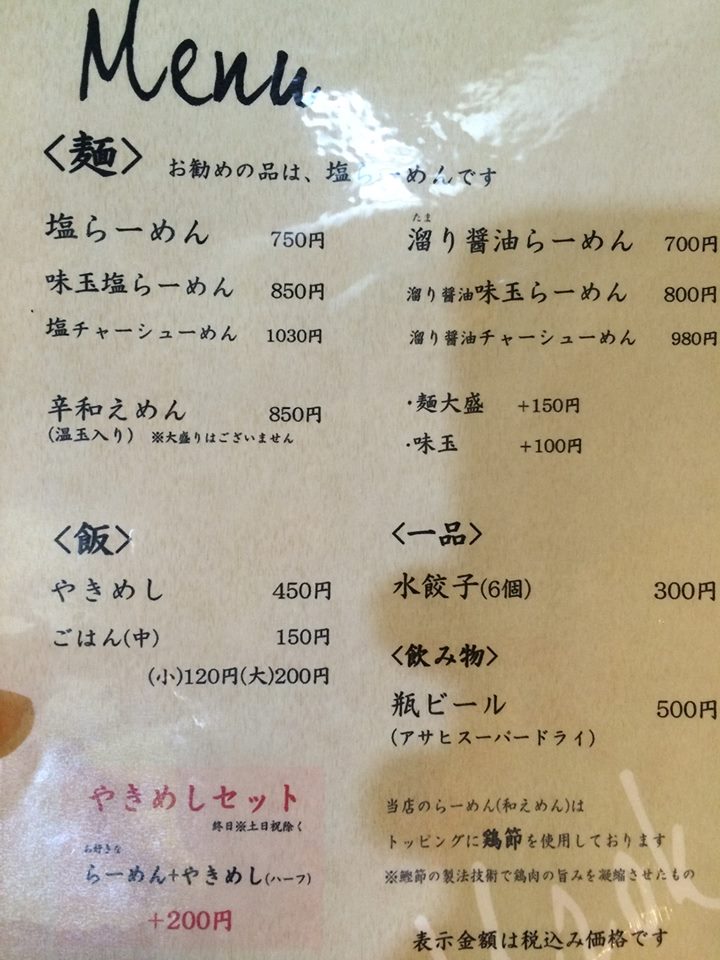 Menu
<麺> お勧めの品は、塩らーめんです
塩らーめん 750円
味玉塩らーめん 850円
塩チャーシューめん 1030円
辛和えめん 850円
(温玉入り) ※大盛りはございません
たま
溜り醤油らーめん 700円
溜り醤油味玉らーめん 800円
溜り醤油チャーシューめん 980円
・麺大盛 +150円
・味玉 +100円
<飯>
やきめし 450円
ごはん(中) 150円
(小)120円(大)200円
<一品>
水餃子(6個) 300円
<飲み物>
瓶ビール 500円
(アサヒスーパードライ)
やきめしセット
終日※土日祝除く
お好きな
らーめん+やきめし(ハーフ)
+200円
当店のらーめん(和えめん)は
トッピングに鶏節を使用しております
※鰹節の製法技術で鶏肉の旨みを凝縮させたもの
表示金額は税込み価格です